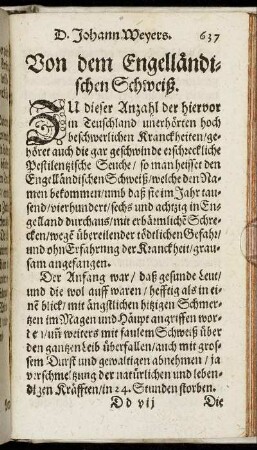 D. Johann Weyers. 637
Von dem Engelländi-
schen Schweiß.
ZU dieser Anzahl der hiervor
in Teutschland unerhörten hoch
beschwerlichen Kranckheiten/ge-
höret auch die gar geschwinde erschreckliche
Pestilentzische Seuche/ so man heisset den
Engelländischen Schweiß/ welche den Na-
men bekommen/umb daß sie im Jahr tau-
send/vierhundert/sechs und achtzig in En-
gelland durchaus/mit erbärmlichē Schre-
cken/wegē übereilender tödtlichen Gefahr/
und ohn Erfahrung der Kranckheit/grau-
sam angefangen.
Der Anfang war/ daß gesunde Leut/
und die wol auff waren/ hefftig als in ei-
nē blick/ mit ängstlichen hitzigen Schmer-
tzen im Magen und Häupt angriffen wor-
dē/ uñ weiters mit faulem Schweiß über
den gantzen Leib überfallen/auch mit gros-
sem Durst und gewaltigen abnehmen/ ja
verschmeltzung der natürlichen und leben-
digen Kräfften/in 24. Stunden storben.
Dd vij Die